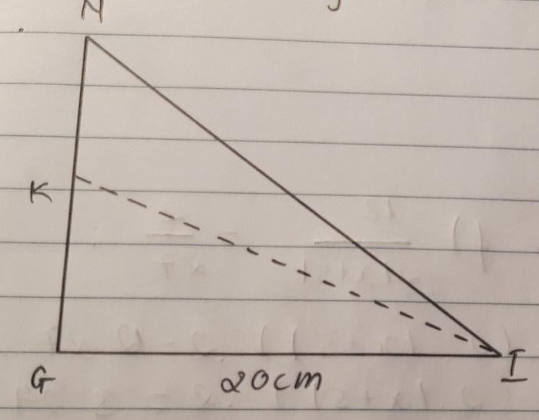 N
K
G 20cm I